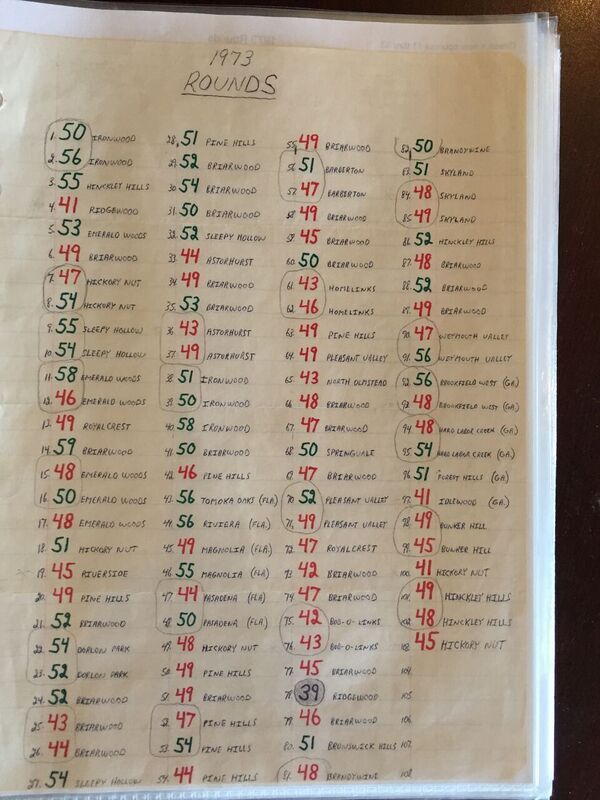 1973
ROUNDS
1. 50 IRONWOOD
2. 56 IRONWOOD
3. 55 HINCKLEY HILLS
4. 41 RIDGEWOOD
5. 53 EMERALD WOODS
6. 49 BRIARWOOD
7. 47 HICKORY NUT
8. 54 HICKORY NUT
9. 55 SLEEPY HOLLOW
10. 54 SLEEPY HOLLOW
11. 58 EMERALD WOODS
12. 46 EMERALD WOODS
13. 49 ROYALCREST
14. 59 BRIARWOOD
15. 48 EMERALD WOODS
16. 50 EMERALD WOODS
17. 48 EMERALD WOODS
18. 51 HICKORY NUT
19. 45 RIVERSIDE
20. 49 PINE HILLS
21. 52 BRIARWOOD
22. 54 DORLON PARK
23. 52 DORLON PARK
24. 52 BRIARWOOD
25. 43 BRIARWOOD
26. 44 BRIARWOOD
27. 54 SLEEPY HOLLOW
28. 51 PINE HILLS
29. 52 BRIARWOOD
30. 54 BRIARWOOD
31. 50 BRIARWOOD
32. 52 SLEEPY HOLLOW
33. 44 ASTORHURST
34. 49 BRIARWOOD
35. 53 BRIARWOOD
36. 43 ASTORHURST
37. 49 ASTORHURST
38. 51 IRONWOOD
39. 50 IRONWOOD
40. 58 IRONWOOD
41. 50 BRIARWOOD
42. 46 PINE HILLS
43. 56 TOMOKA OAKS (FLA.)
44. 56 RIVIERA (FLA.)
45. 49 MAGNOLIA (FLA.)
46. 55 MAGNOLIA (FLA)
47. 44 PASADENA (FLA)
48. 50 PASADENA (FLA)
49. 48 HICKORY NUT
50. 49 PINE HILLS
51. 49 BRIARWOOD
52. 47 PINE HILLS
53. 54 PINE HILLS
54. 44 PINE HILLS
55. 49 BRIARWOOD
56. 51 BARBERTON
57. 47 BARBERTON
58. 49 BRIARWOOD
59. 45 BRIARWOOD
60. 50 BRIARWOOD
61. 43 HOMELINKS
62. 46 HOMELINKS
63. 49 PINE HILLS
64. 49 PLEASANT VALLEY
65. 43 NORTH OLMSTEAD
66. 48 BRIARWOOD
67. 47 BRIARWOOD
68. 50 SPRINGVALE
69. 47 BRIARWOOD
70. 52 PLEASANT VALLEY
71. 49 PLEASANT VALLEY
72. 47 ROYALCREST
73. 42 BRIARWOOD
74. 47 BRIARWOOD
75. 42 BOB-O-LINKS
76. 43 BOB-O-LINKS
77. 45 BRIARWOOD
78. 39 RIDGEWOOD
79. 46 BRIARWOOD
80. 51 BRUNSWICK HILLS
81. 48 BRANDYWINE
82. 50 BRANDYWINE
83. 51 SKYLAND
84. 48 SKYLAND
85. 49 SKYLAND
86. 52 HINCKLEY HILLS
87. 48 BRIARWOOD
88. 52 BRIARWOOD
89. 49 BRIARWOOD
90. 47 WEYMOUTH VALLEY
91. 56 WEYMOUTH VALLEY
92. 56 BROOKFIELD WEST (GA)
93. 48 BROOKFIELD WEST (GA.)
94. 48 HARD LABOR CREEK (GA.)
95. 54 HARD LABOR CREEK (GA.)
96. 51 FOREST HILLS (GA)
97. 41 IDLEWOOD (GA.)
98. 49 BUNKER HILL
99. 45 BUNKER HILL
100. 41 HICKORY NUT
101. 49 HINCKLEY HILLS
102. 48 HINCKLEY HILLS
103. 45 HICKORY NUT
104.
105.
106.
107.
108.